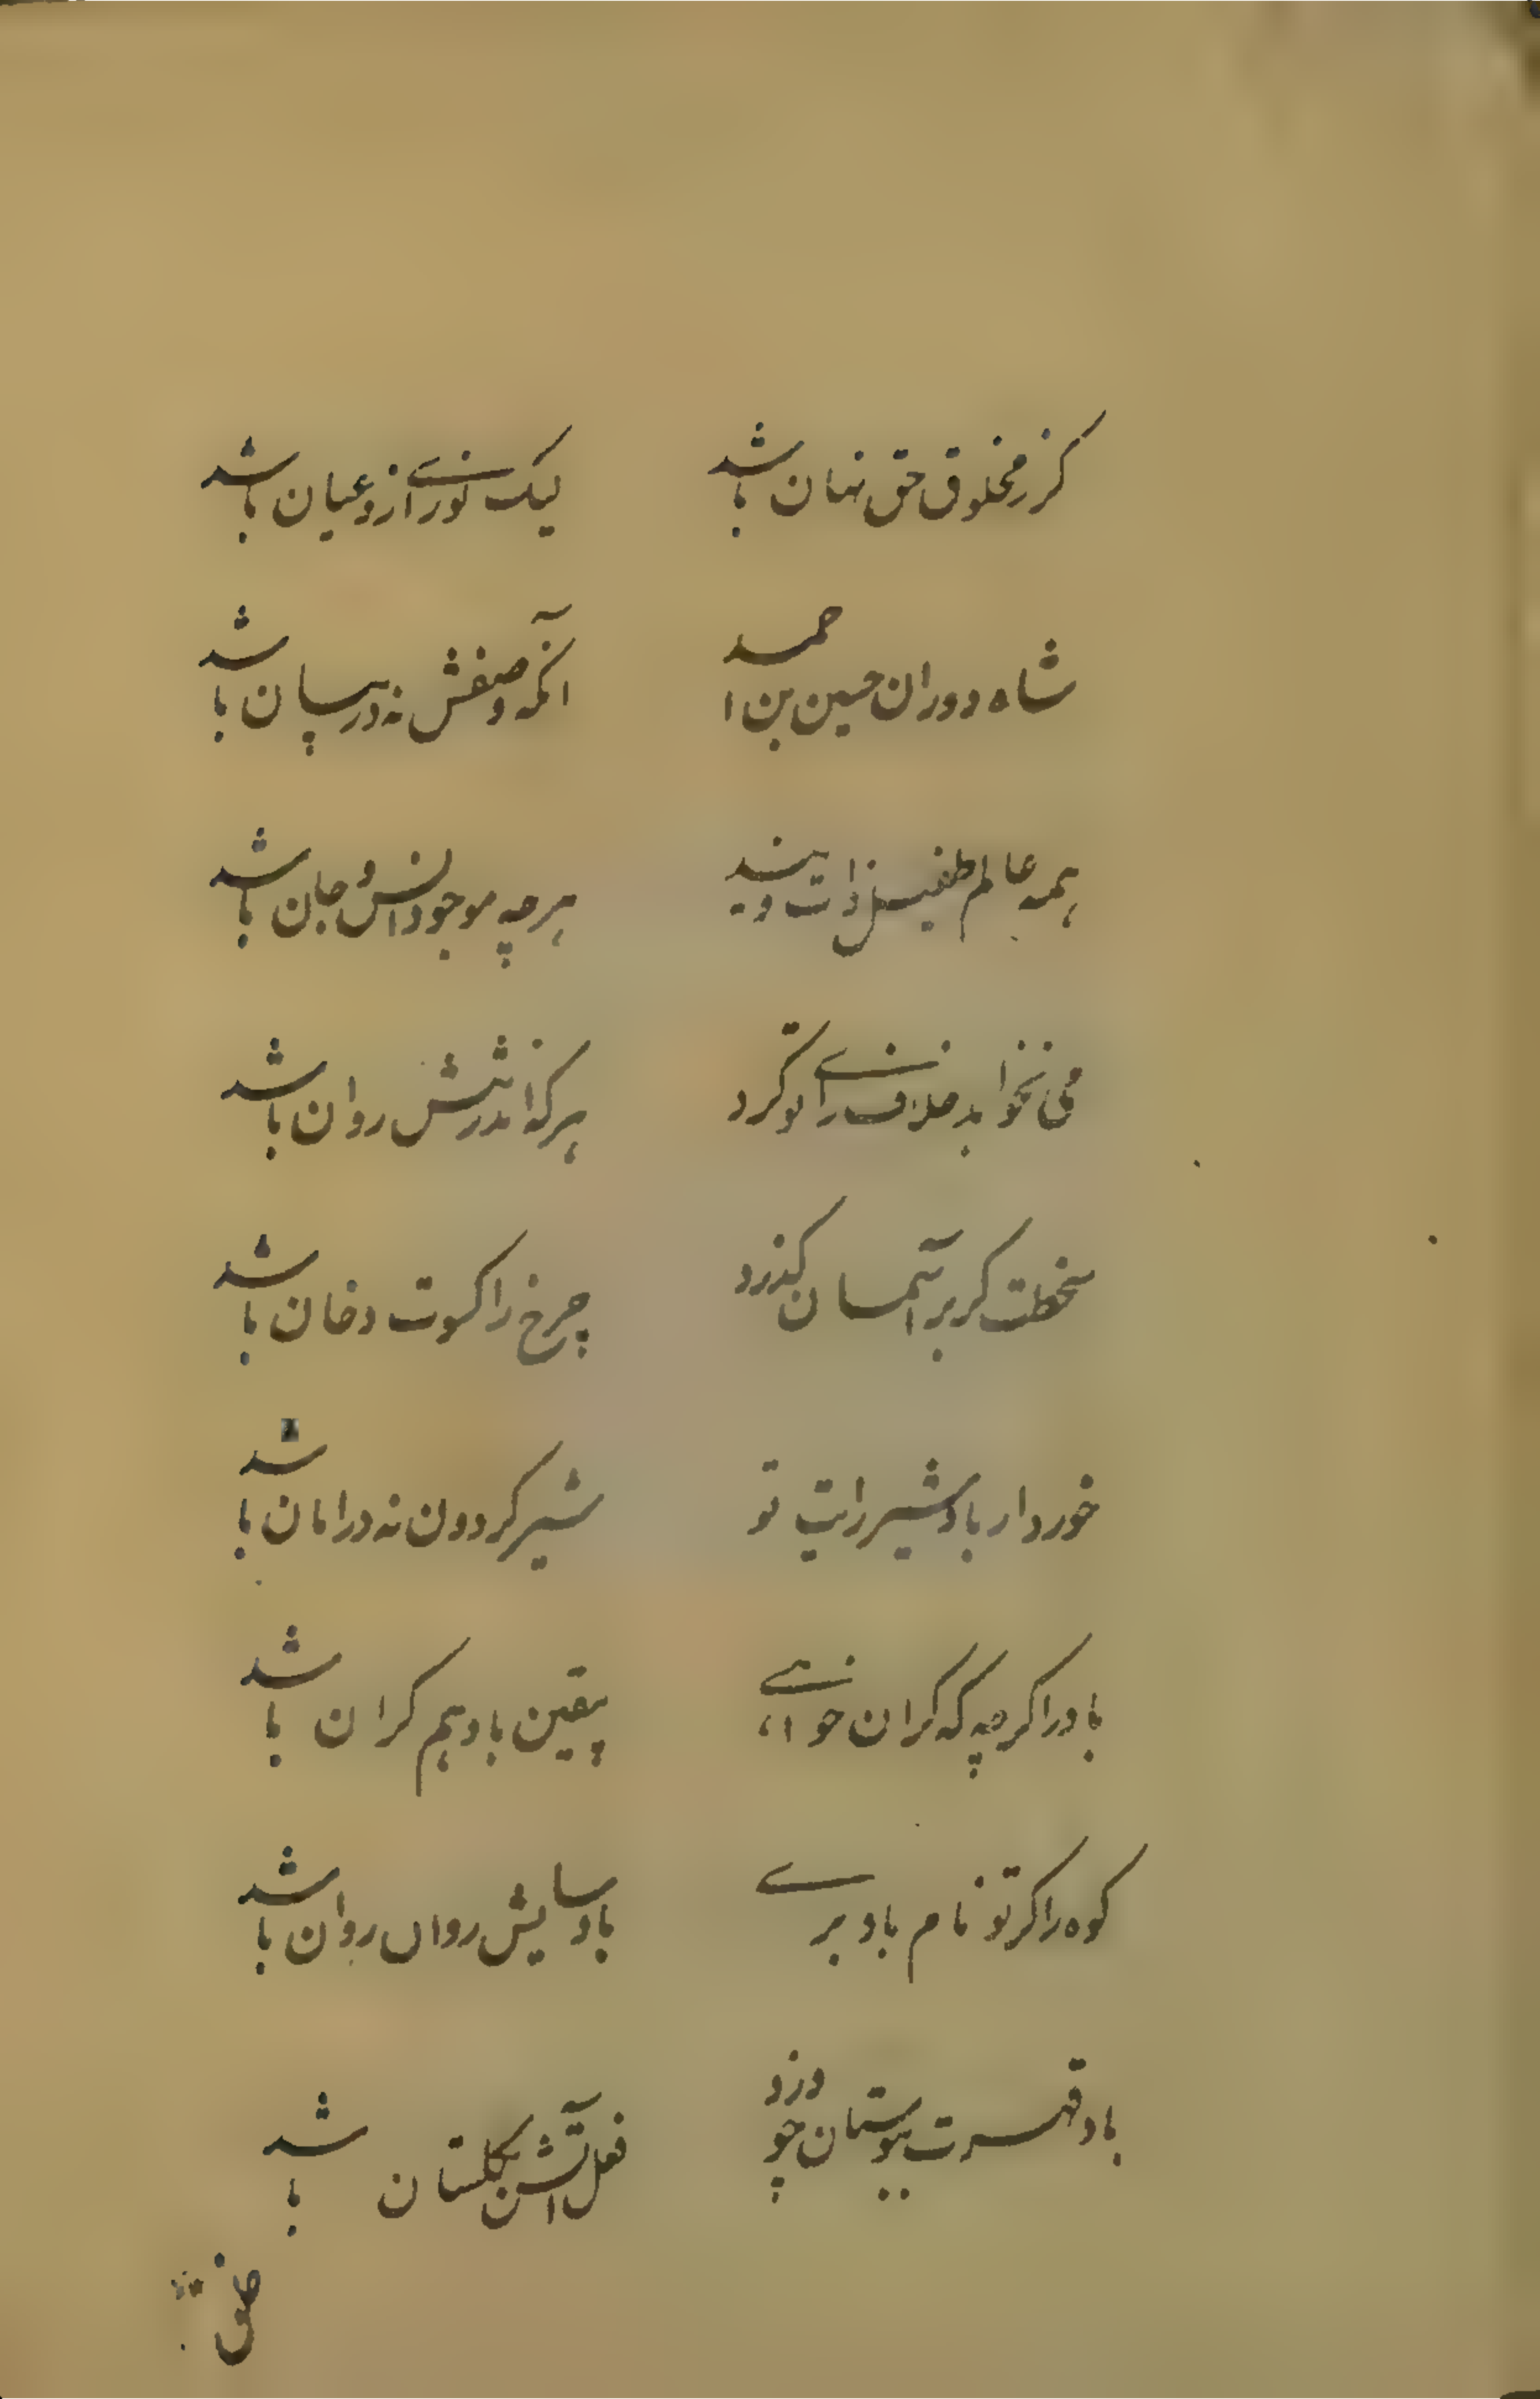 کزر مخلوق حق نهان باشد لیک نورے ازو عیان باشد
شاه دوران حسین بن احمد آنکه وصفش نه در بیان باشد
همه عالم طفیل ذات ویند هرچه موجود انس و جان باشد
می نخواهد خلاف راے تو کرد هرکه اندر تنش روان باشد
سخطت کر بر آسمان کذرد چرخ را کسوت دخان باشد
خورد ار باد شیر رایت تو شیر کردون نه در امان باشد
باد را کرچه که کران خوانے بیقین باد هم کران باشد
کوه را کر تو نام باد برے باد سایش روان روان باشد
باد قهرت ببوستان چو وزد فعل آتش بکلستان باشد